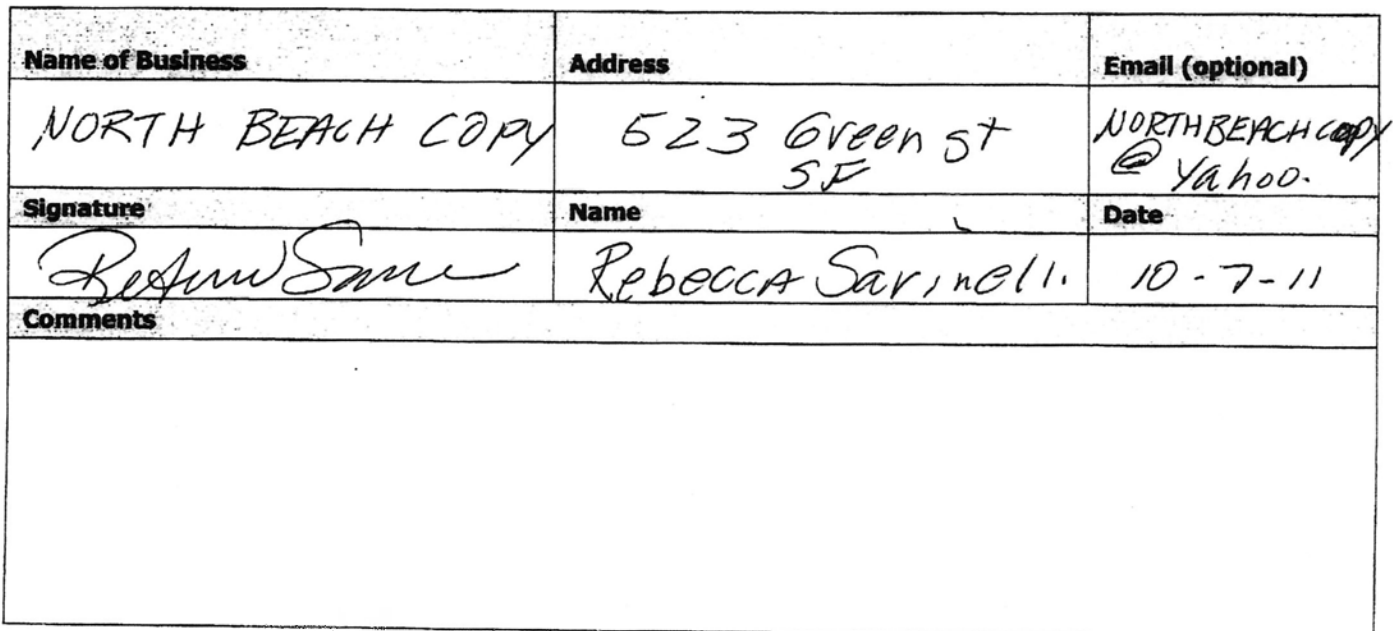 Name of Business Address Email (optional)
NORTH BEACH COPY 523 Green st NORTHBEACHCOPY
SF @ Yahoo.
Signature Name Date
Rebecca Sarinelli 10-7-11
Comments